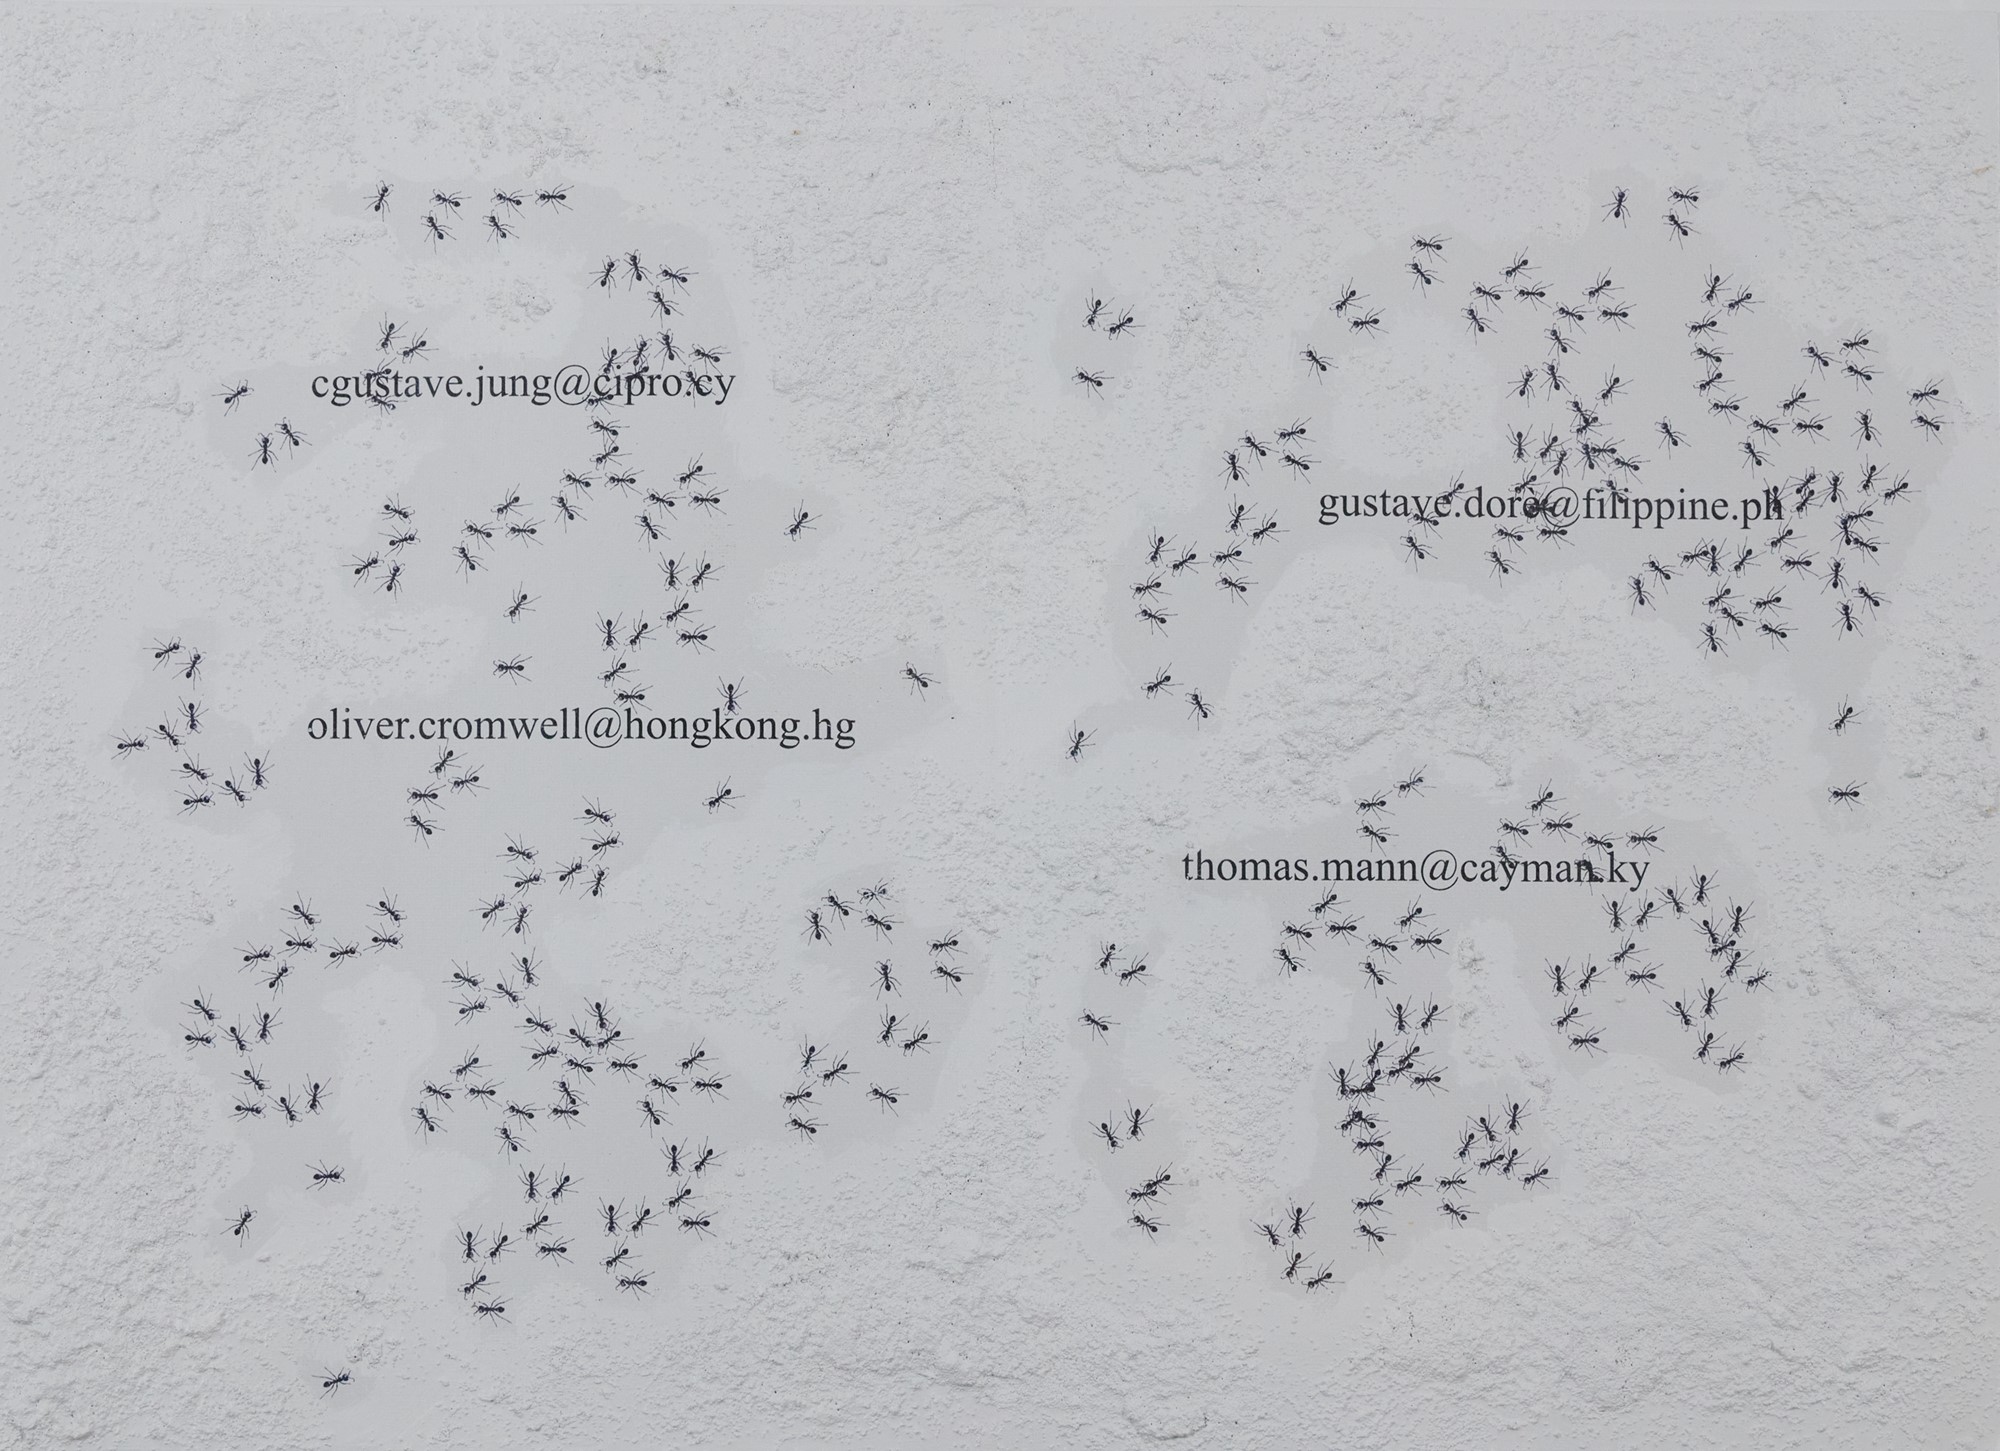 cgustave.jung@cipro.cy
gustave.dorè@filippine.ph
oliver.cromwell@hongkong.hg
thomas.mann@cayman.ky